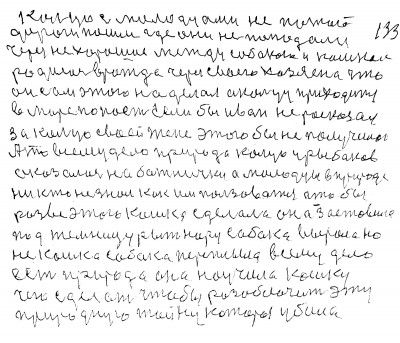 Кольцо с молодцами не
дороги пошли где они не попадали
Через не хорошие между собакой и кошкой
родилась вражда через своего хозяена что
он сам этого наделал а кольцу приходится
в море Если бы иван не рассказал
за кольцо своей жене этого бы не получилось
А то всему дело природа кольцо у рыбаков
оказался на ботинички а молодцы в природе
ни кто не знал как им ползоватся это бы
розве этого кошка сделала она заставила
под темницу рыт нору собака вырола но
не кошка собака всему дело
ест природа она научила кошку
что сделат чтобы розоблочит эту
природную тайну которая убила
133